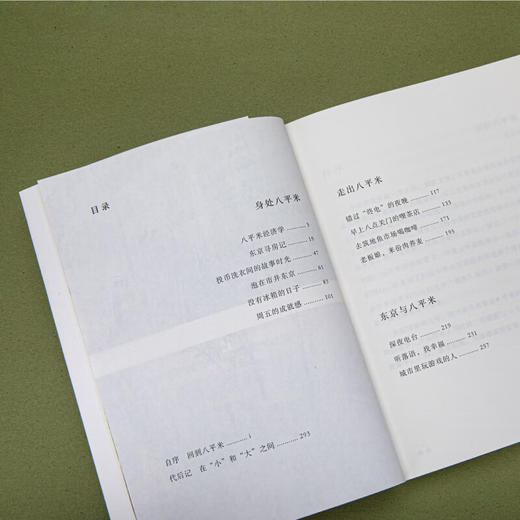 目录
身处八平米
八平米经济学 ........ 3
东京寻房记 ........ 19
投币洗衣间的故事时光 ........ 47
泡在市井东京 ........ 61
没有冰箱的日子 ........ 83
周五的成就感 ........ 101
自序 回到八平米 ........ 1
代后记 在“小”和“大”之间 ........ 293
走出八平米
错过“终电”的夜晚 ........ 117
早上八点关门的喫茶店 ........ 135
去筑地鱼市场喝咖啡 ........ 173
老板娘，来份肉荞麦 ........ 195
东京与八平米
深夜电台 ........ 219
听落语，找幸福 ........ 231
城市里玩游戏的人 ........ 257